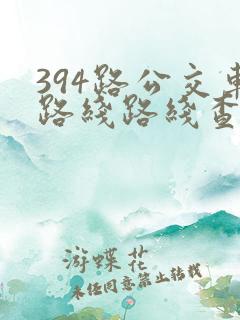 394路公交車
路线路线查
游蝶花
未经同意禁止转载